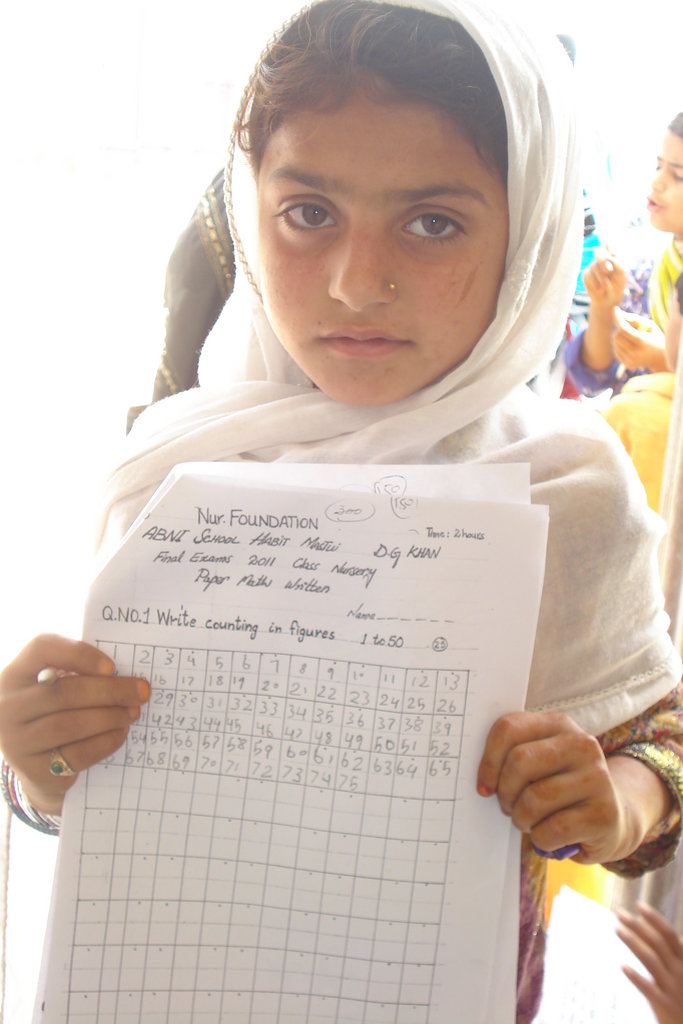 150
200 150
Nur. FOUNDATION
Time: 2 hours
ABNI SCHOOL HABIT D-G KHAN
Final Exams 2011 Class Nursery
Paper Maths Written
Name
Q.NO.1 Write counting in figures 1 to 50 25
1 2 3 4 5 6 7 8 9 10 11 12 13
16 17 18 19 20 21 22 23 24 25 26
29 30 31 32 33 34 35 36 37 38 39
42 43 44 45 46 47 48 49 50 51 52
54 55 56 57 58 59 60 61 62 63 64 65
67 68 69 70 71 72 73 74 75